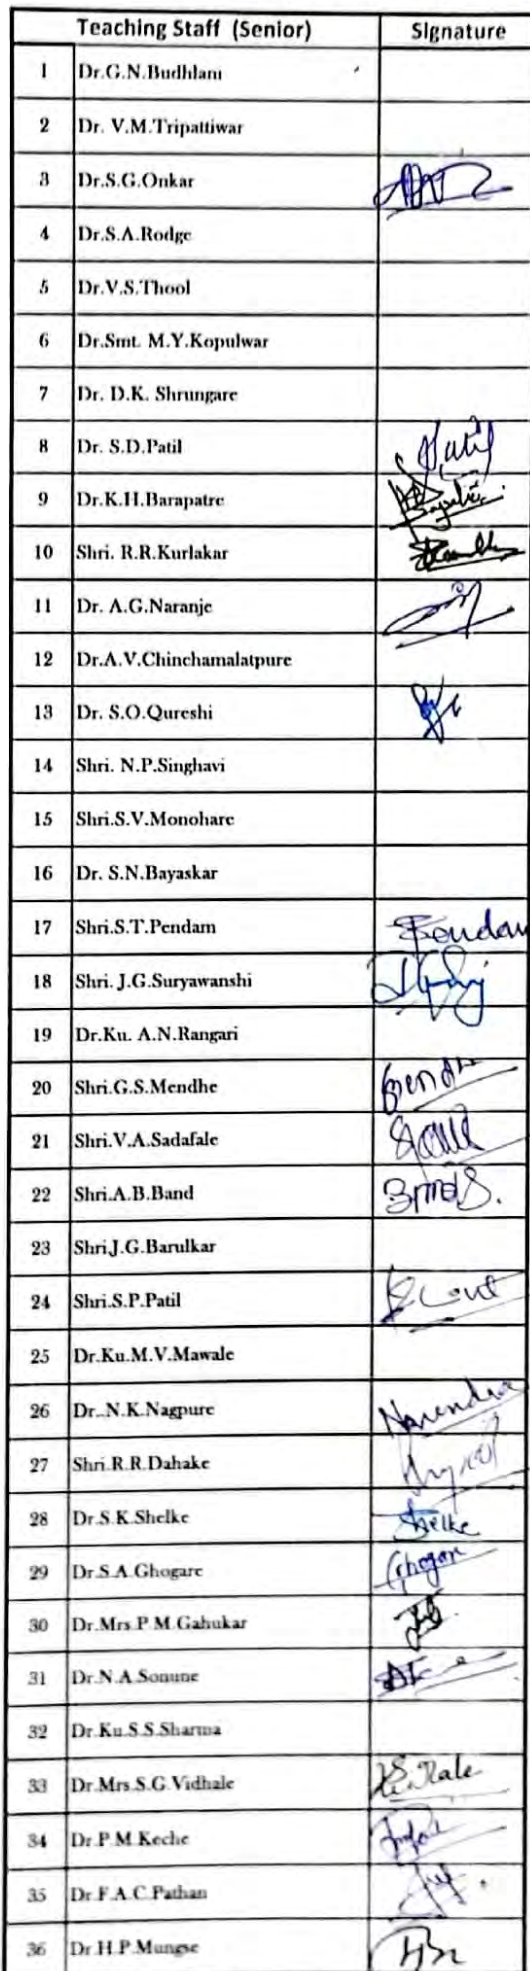 Teaching Staff (Senior) Signature
1 Dr.G.N.Budhlani
2 Dr. V.M.Tripattiwar
3 Dr.S.G.Onkar
4 Dr.S.A.Rodge
5 Dr.V.S.Thool
6 Dr.Smt. M.Y.Kopulwar
7 Dr. D.K. Shrungare
8 Dr. S.D.Patil Patil
9 Dr.K.H.Barapatre
10 Shri. R.R.Kurlakar
11 Dr. A.G.Naranje
12 Dr.A.V.Chinchamalatpure
13 Dr. S.O.Qureshi
14 Shri. N.P.Singhavi
15 Shri.S.V.Monohare
16 Dr. S.N.Bayaskar
17 Shri.S.T.Pendam
18 Shri. J.G.Suryawanshi
19 Dr.Ku. A.N.Rangari
20 Shri.G.S.Mendhe
21 Shri.V.A.Sadafale
22 Shri.A.B.Band
23 Shri.J.G.Barulkar
24 Shri.S.P.Patil
25 Dr.Ku.M.V.Mawale
26 Dr..N.K.Nagpure Narendra
27 Shri.R.R.Dahake
28 Dr.S.K.Shelke Shelke
29 Dr.S.A.Ghogare
30 Dr.Mrs.P.M.Gahukar
31 Dr.N.A.Sonune
32 Dr.Ku.S.S.Sharma
33 Dr.Mrs.S.G.Vidhale
34 Dr.P.M.Keche
35 Dr.F.A.C.Pathan
36 Dr.H.P.Mungse